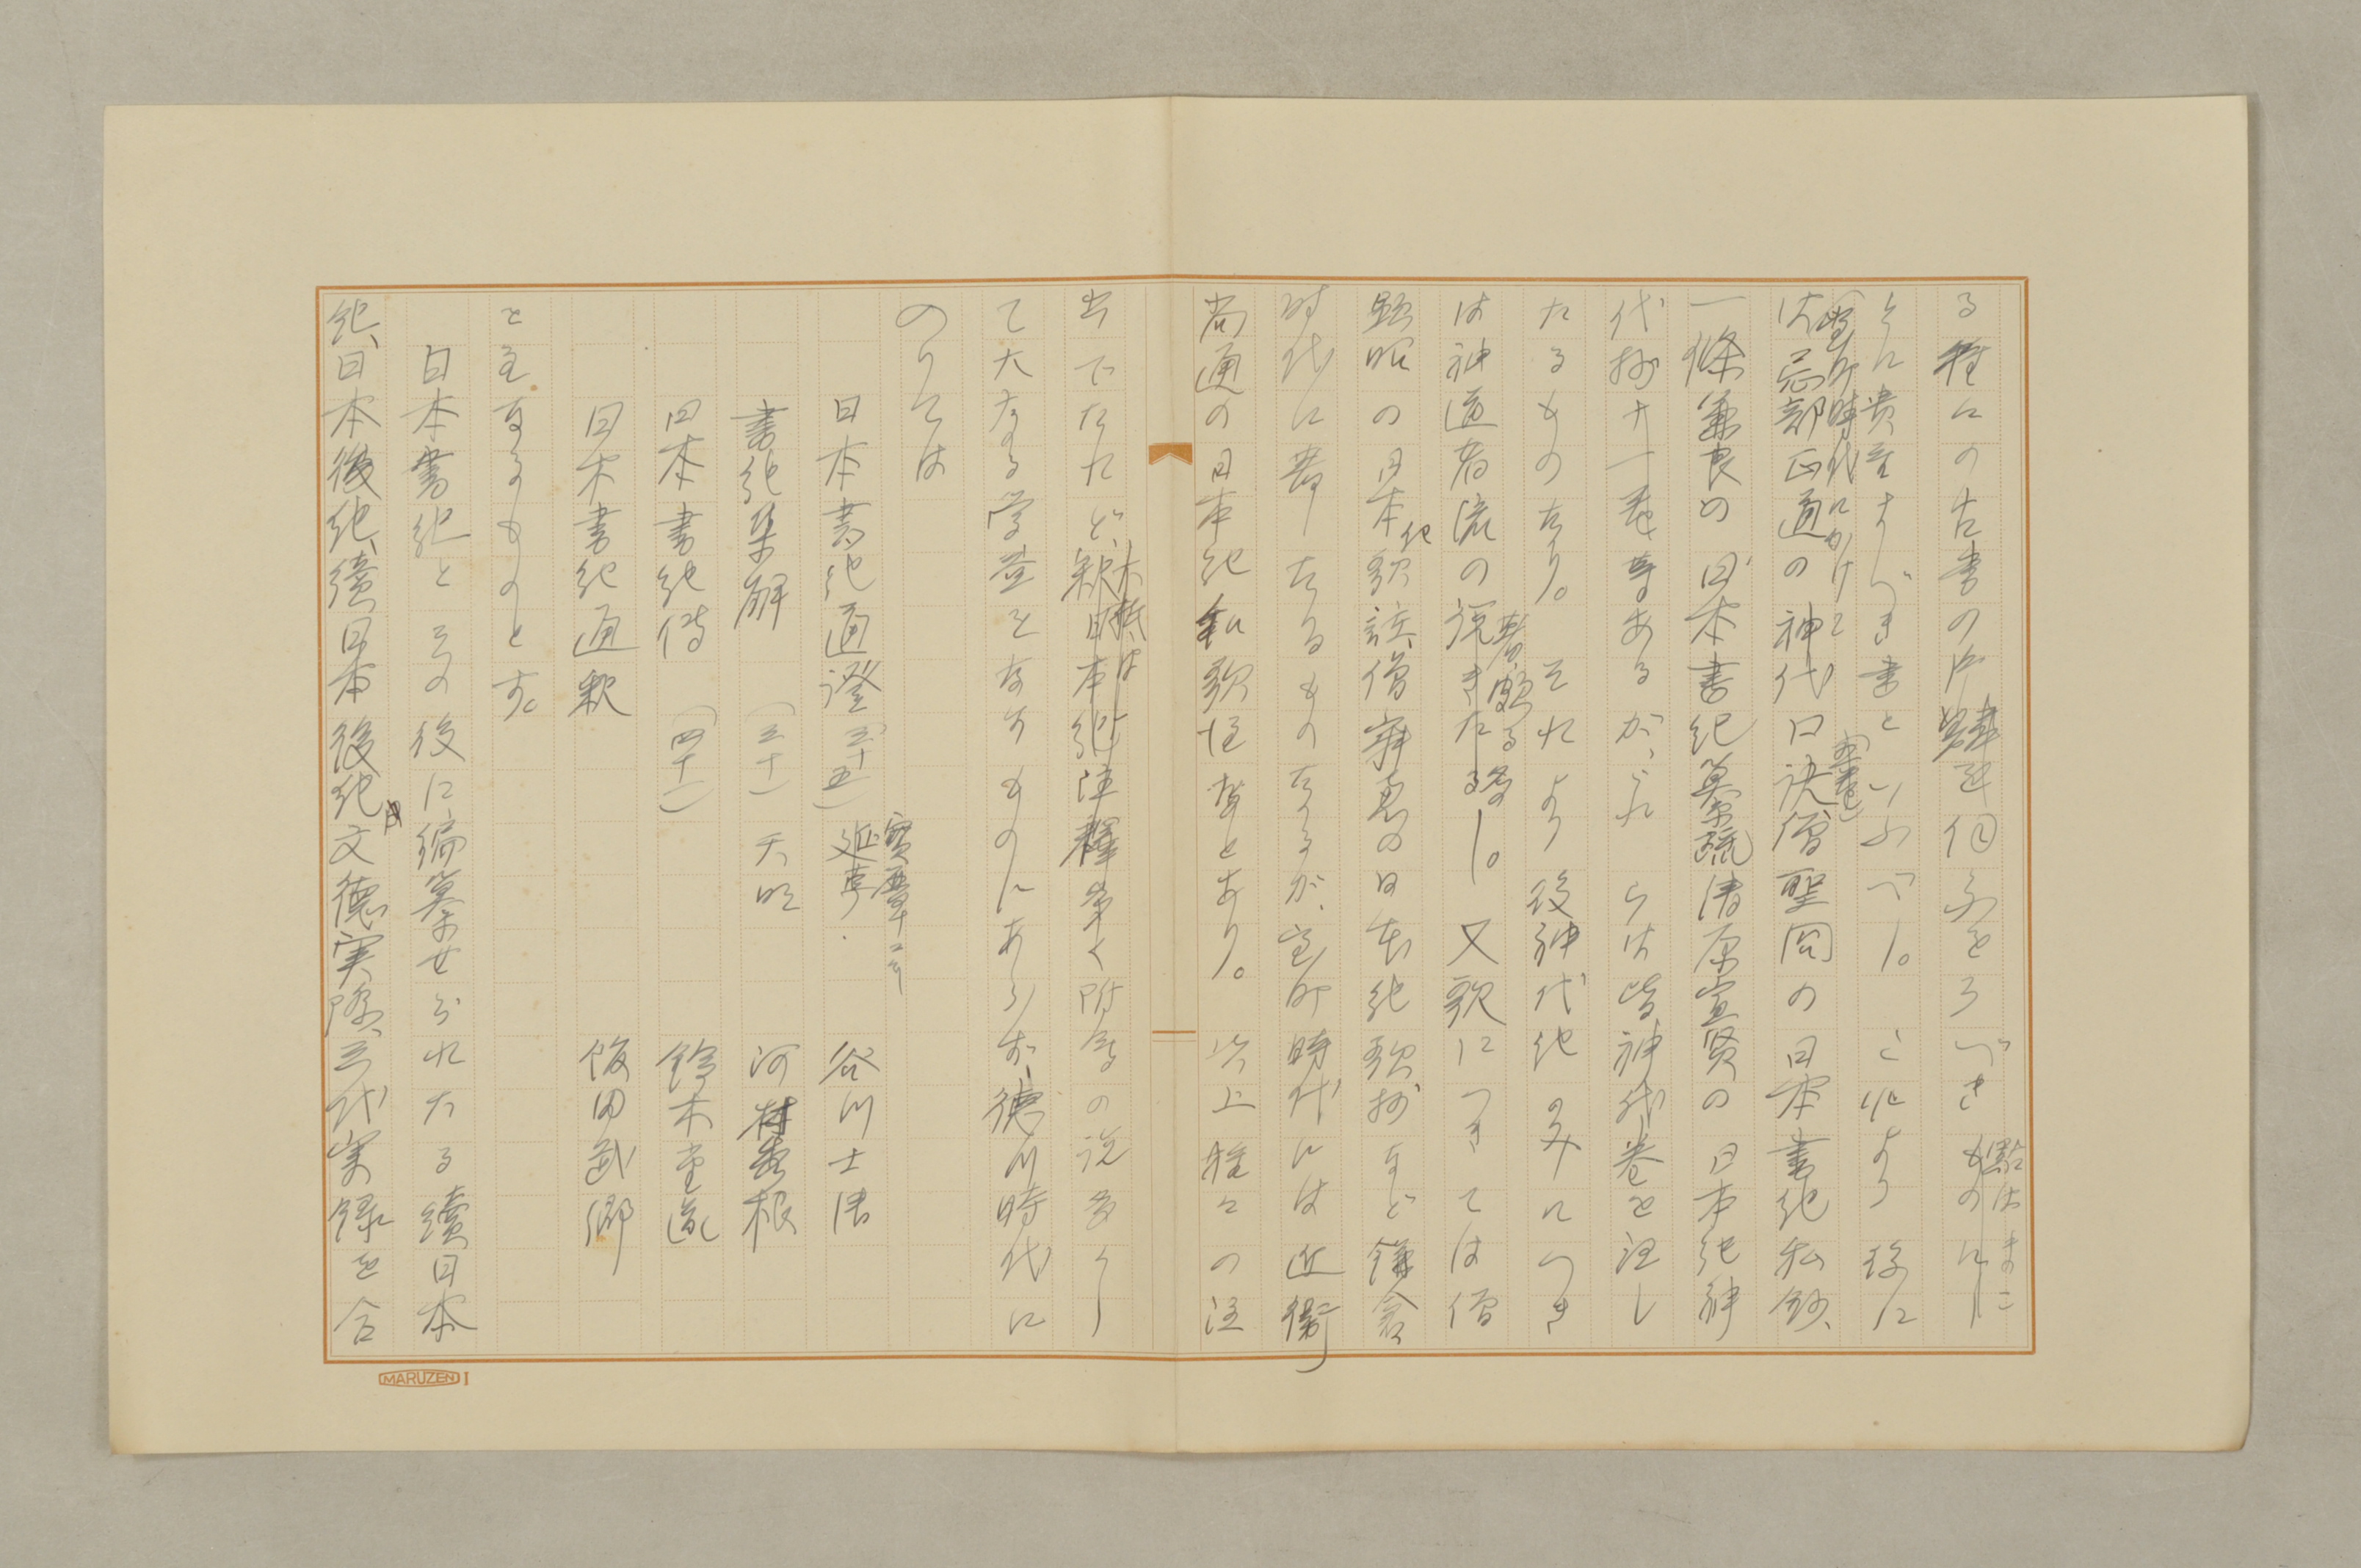 る種々の古書の片鱗を伺ふをうべきもの
點はまこ
とに貴重すべき書といふべし。これより後に
室町時代にかけて
は忌部正通の神代口訣、僧聖冏の日本書紀私鈔、
一條兼良の日本書紀纂疏、清原宣賢の日本紀神
代抄十一巻等あるが、これらは皆神代巻を注し
たるものなり。それより後神代紀のみにつき
は神道者流の説きたる
著頗る多し。又歌につきては僧
顕昭の日本紀歌註、僧寂恵の日本紀歌抄など鎌倉
時代に著したるものなるが、室町時代には近衛
尚通の日本紀和歌注等とあり。以上種々の注
出でたれど、釈日本紀
注釋家く附会の説多くし
大抵は
て大なる学益をなすものにあらず、徳川時代に
のりては
日本書紀通證(三十五) 延享 谷川士清
寳暦十二年
書紀集解(三十) 天明 河村秀根
日本書紀傳(四十一) 鈴木重胤
日本書紀通釈 飯田武郷
を主なるものとす。
日本書紀とその後に編纂せられたる續日本
紀、日本後紀、續日本後紀、文德実録、三代実録を合
MARUZEN I